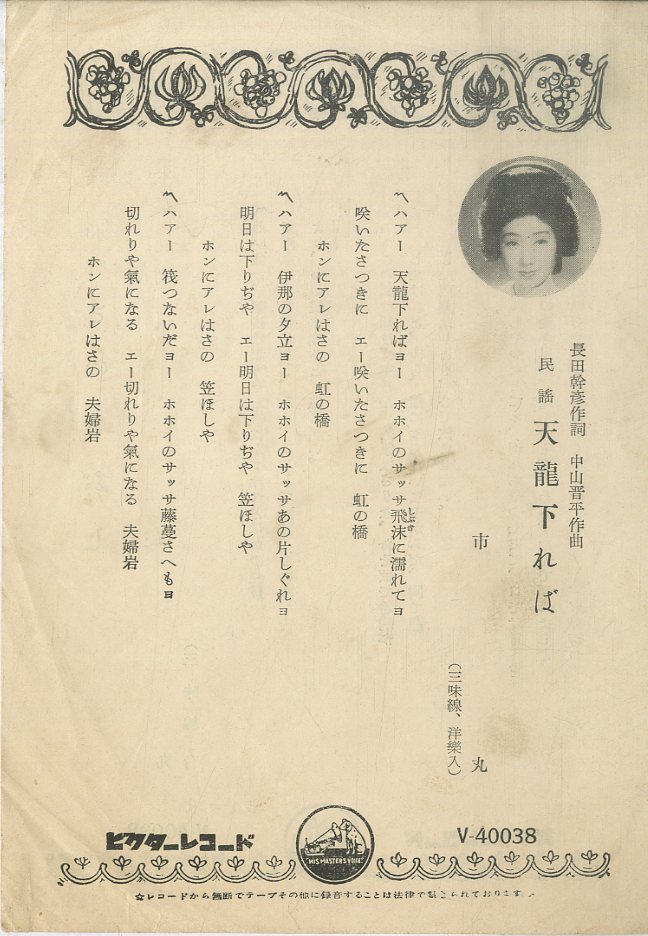 長田幹彦作詞 中山晋平作曲
民謡 天龍下れば
市丸
(三味線、洋樂入)
〽ハアー 天龍下ればヨー ホホイのサッサ飛沫に濡れてヨ
しぶき
咲いたさつきに エー咲いたさつきに 虹の橋
ホンにアレはさの 虹の橋
〽ハアー 伊那の夕立ヨー ホホイのサッサあの片しぐれヨ
明日は下りぢや エー明日は下りぢや 笠ほしや
ホンにアレはさの 笠ほしや
〽ハアー 筏つないだヨー ホホイのサッサ藤蔓さへもヨ
切れりや氣になる エー切れりや氣になる 夫婦岩
ホンにアレはさの 夫婦岩
ビクターレコード
HIS MASTER'S VOICE
V-40038
☆レコードから無断でテープその他に録音することは法律で禁じられております。